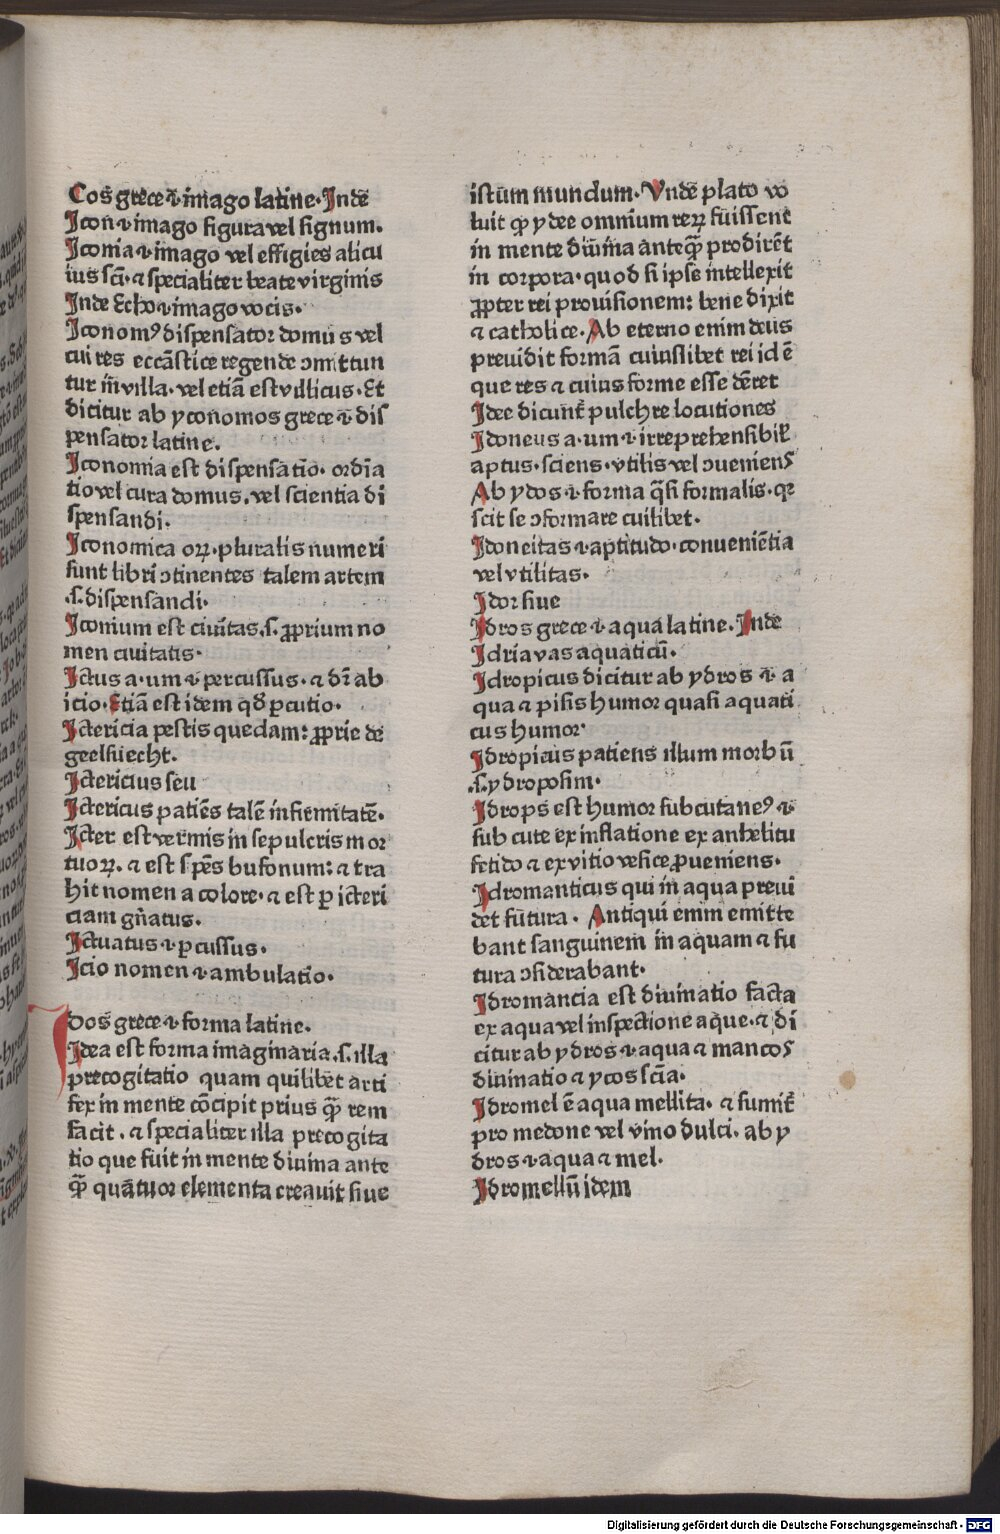 Cos grece .i. imago latine. Inde
Icon .i. imago figura vel signum.
Iconia .i. imago vel effigies alicu
ius scī. ⁊ specialiter beate virginis
Inde Echo .i. imago vocis.
Iconomꝰ dispensator domus vel
cui res eccāstice regende ꝯmittun
tur in̄ villa. vel etiā est villicus. Et
dicitur ab yconomos grece .i. dis
pensator latine.
Iconomia est dispensatio. ordīa
tio vel cura domus. vel scientia di
spensandi.
Iconomica oꝝ. pluralis numeri
sunt libri ꝯtinentes talem artem
.s. dispensandi.
Iconium est ciuitas .s. ꝓprium no
men ciuitatis.
Ictus a. um .i. percussus. ⁊ dr̄ ab
icio. Etiā est idem qđ ꝑcutio.
Ictericia pestis quedam: ꝓprie de
geelsuecht.
Ictericius seu
Ictericus patiēs talē infirmitatē.
Icter est vermis in sepulcris mor
tuoꝝ. ⁊ est spēs bufonum: ⁊ tra
hit nomen a colore. ⁊ est ꝑ icteri
ciam gn̄atus.
Ictuatus .i. ꝑcussus.
Icio nomen .i. ambulatio.
Idos grece .i. forma latine.
Idea est forma imaginaria .s. illa
precogitatio quam quilibet arti
fex in mente cōcipit prius qꝫ̄ rem
facit. ⁊ specialiter illa precogita
tio que fuit in mente diuina ante
qꝫ̄ quātuor elementa creauit siue
istum mundum. Vnde plato vo
luit ꝙ ydee omnium reꝝ fuissent
in mente diuina anteqꝫ̄ prodirēt
in corpora. quod si ipse intellexit
ꝓpter rei prouisionem: bene dixit
⁊ catholice. Ab eterno enim deus
preuidit formā cuiuslibet rei id ē
que res ⁊ cuius forme esse dēret
Idee dicunt̄ pulchre locutiones
Idoneus a. um .i. irreprehensibil̄
aptus. sciens. vtilis vel ꝯueniens
Ab ydos .i. forma q̄si formalis. qꝛ
scit se ꝯformare cuilibet.
Idoneitas .i. aptitudo. conueniētia
vel vtilitas.
Idor siue
Idros grece .i. aqua latine. Inde
Idria vas aquaticū.
Idropicus dicitur ab ydros .i. a
qua ⁊ pisis humor quasi aquati
cus humor
Idropicus patiens illum morbū
.s. ydroposim.
Idrops est humor subcutaneꝰ .i.
sub cute ex inflatione ex anhelitu
fetido ⁊ ex vitio vesice ꝓueniens.
Idromanticus qui in aqua preui
det futura. Antiqui enim emitte
bant sanguinem in aquam ⁊ fu
tura ꝯsiderabant.
Idromancia est diuinatio facta
ex aqua vel inspectione aque. ⁊ di
citur ab ydros .i. aqua ⁊ mancos
diuinatio ⁊ ycos scīa.
Idromel ē aqua mellita. ⁊ sumit̄
pro medone vel vino dulci. ab y
dros .i. aqua ⁊ mel.
Idromellū idem
Digitalisierung gefördert durch die Deutsche Forschungsgemeinschaft - DFG